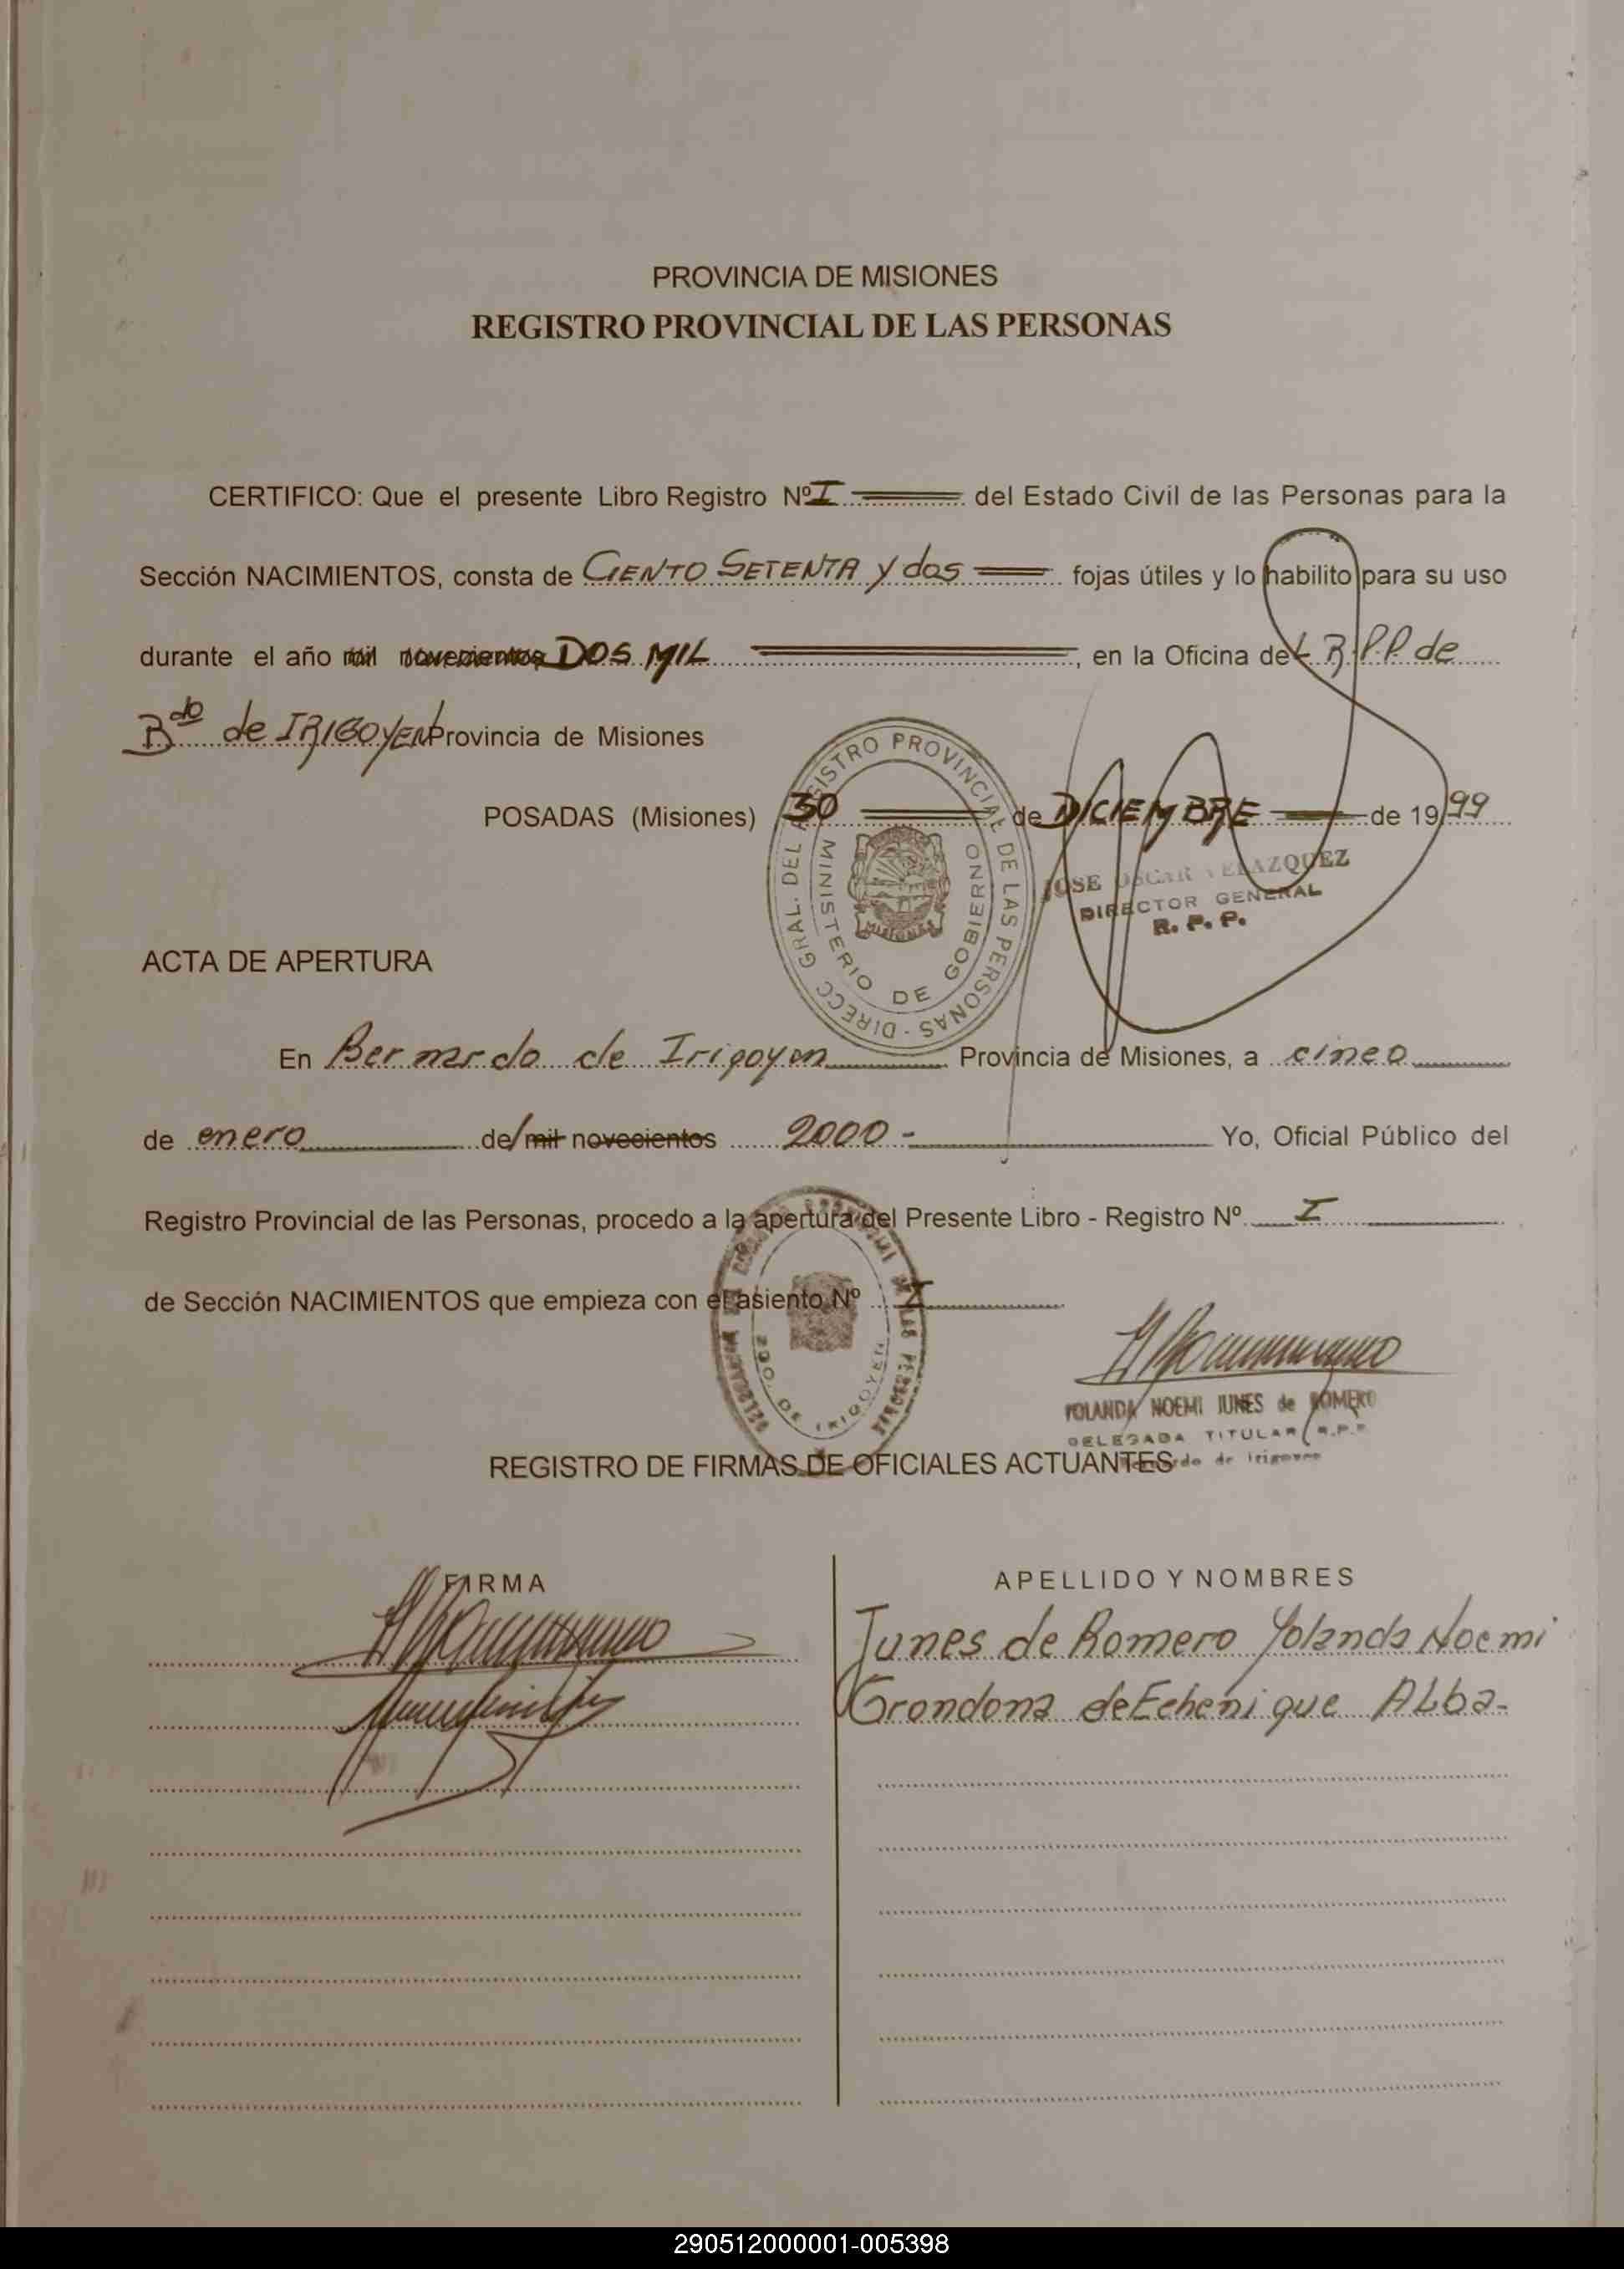 PROVINCIA DE MISIONES
REGISTRO PROVINCIAL DE LAS PERSONAS
CERTIFICO: Que el presente Libro Registro Nº I del Estado Civil de las Personas para la
Sección NACIMIENTOS, consta de CIENTO SETENTA y dos fojas útiles y lo habilito para su uso
durante el año mil novecientos DOS MIL, en la Oficina del R.P.P. de
Bdo de IRIGOYEN Provincia de Misiones
POSADAS (Misiones) 30 de DICIEMBRE de 1999
DIRECC. GRAL. DEL REGISTRO PROVINCIAL DE LAS PERSONAS
MINISTERIO DE GOBIERNO
MISIONES
JOSE OSCAR VELAZQUEZ
DIRECTOR GENERAL
R. P. P.
ACTA DE APERTURA
En Bernardo de Irigoyen Provincia de Misiones, a cinco
de enero de mil novecientos 2000- Yo, Oficial Público del
Registro Provincial de las Personas, procedo a la apertura del Presente Libro - Registro Nº I
de Sección NACIMIENTOS que empieza con el asiento Nº I
BDO. DE IRIGOYEN
YOLANDA NOEMI IUNES de ROMERO
DELEGADA TITULAR R.P.P.
Bernardo de Irigoyen
REGISTRO DE FIRMAS DE OFICIALES ACTUANTES
FIRMA APELLIDO Y NOMBRES
Iunes de Romero Yolanda Noemi
Grondona de Echenique Alba-
290512000001-005398